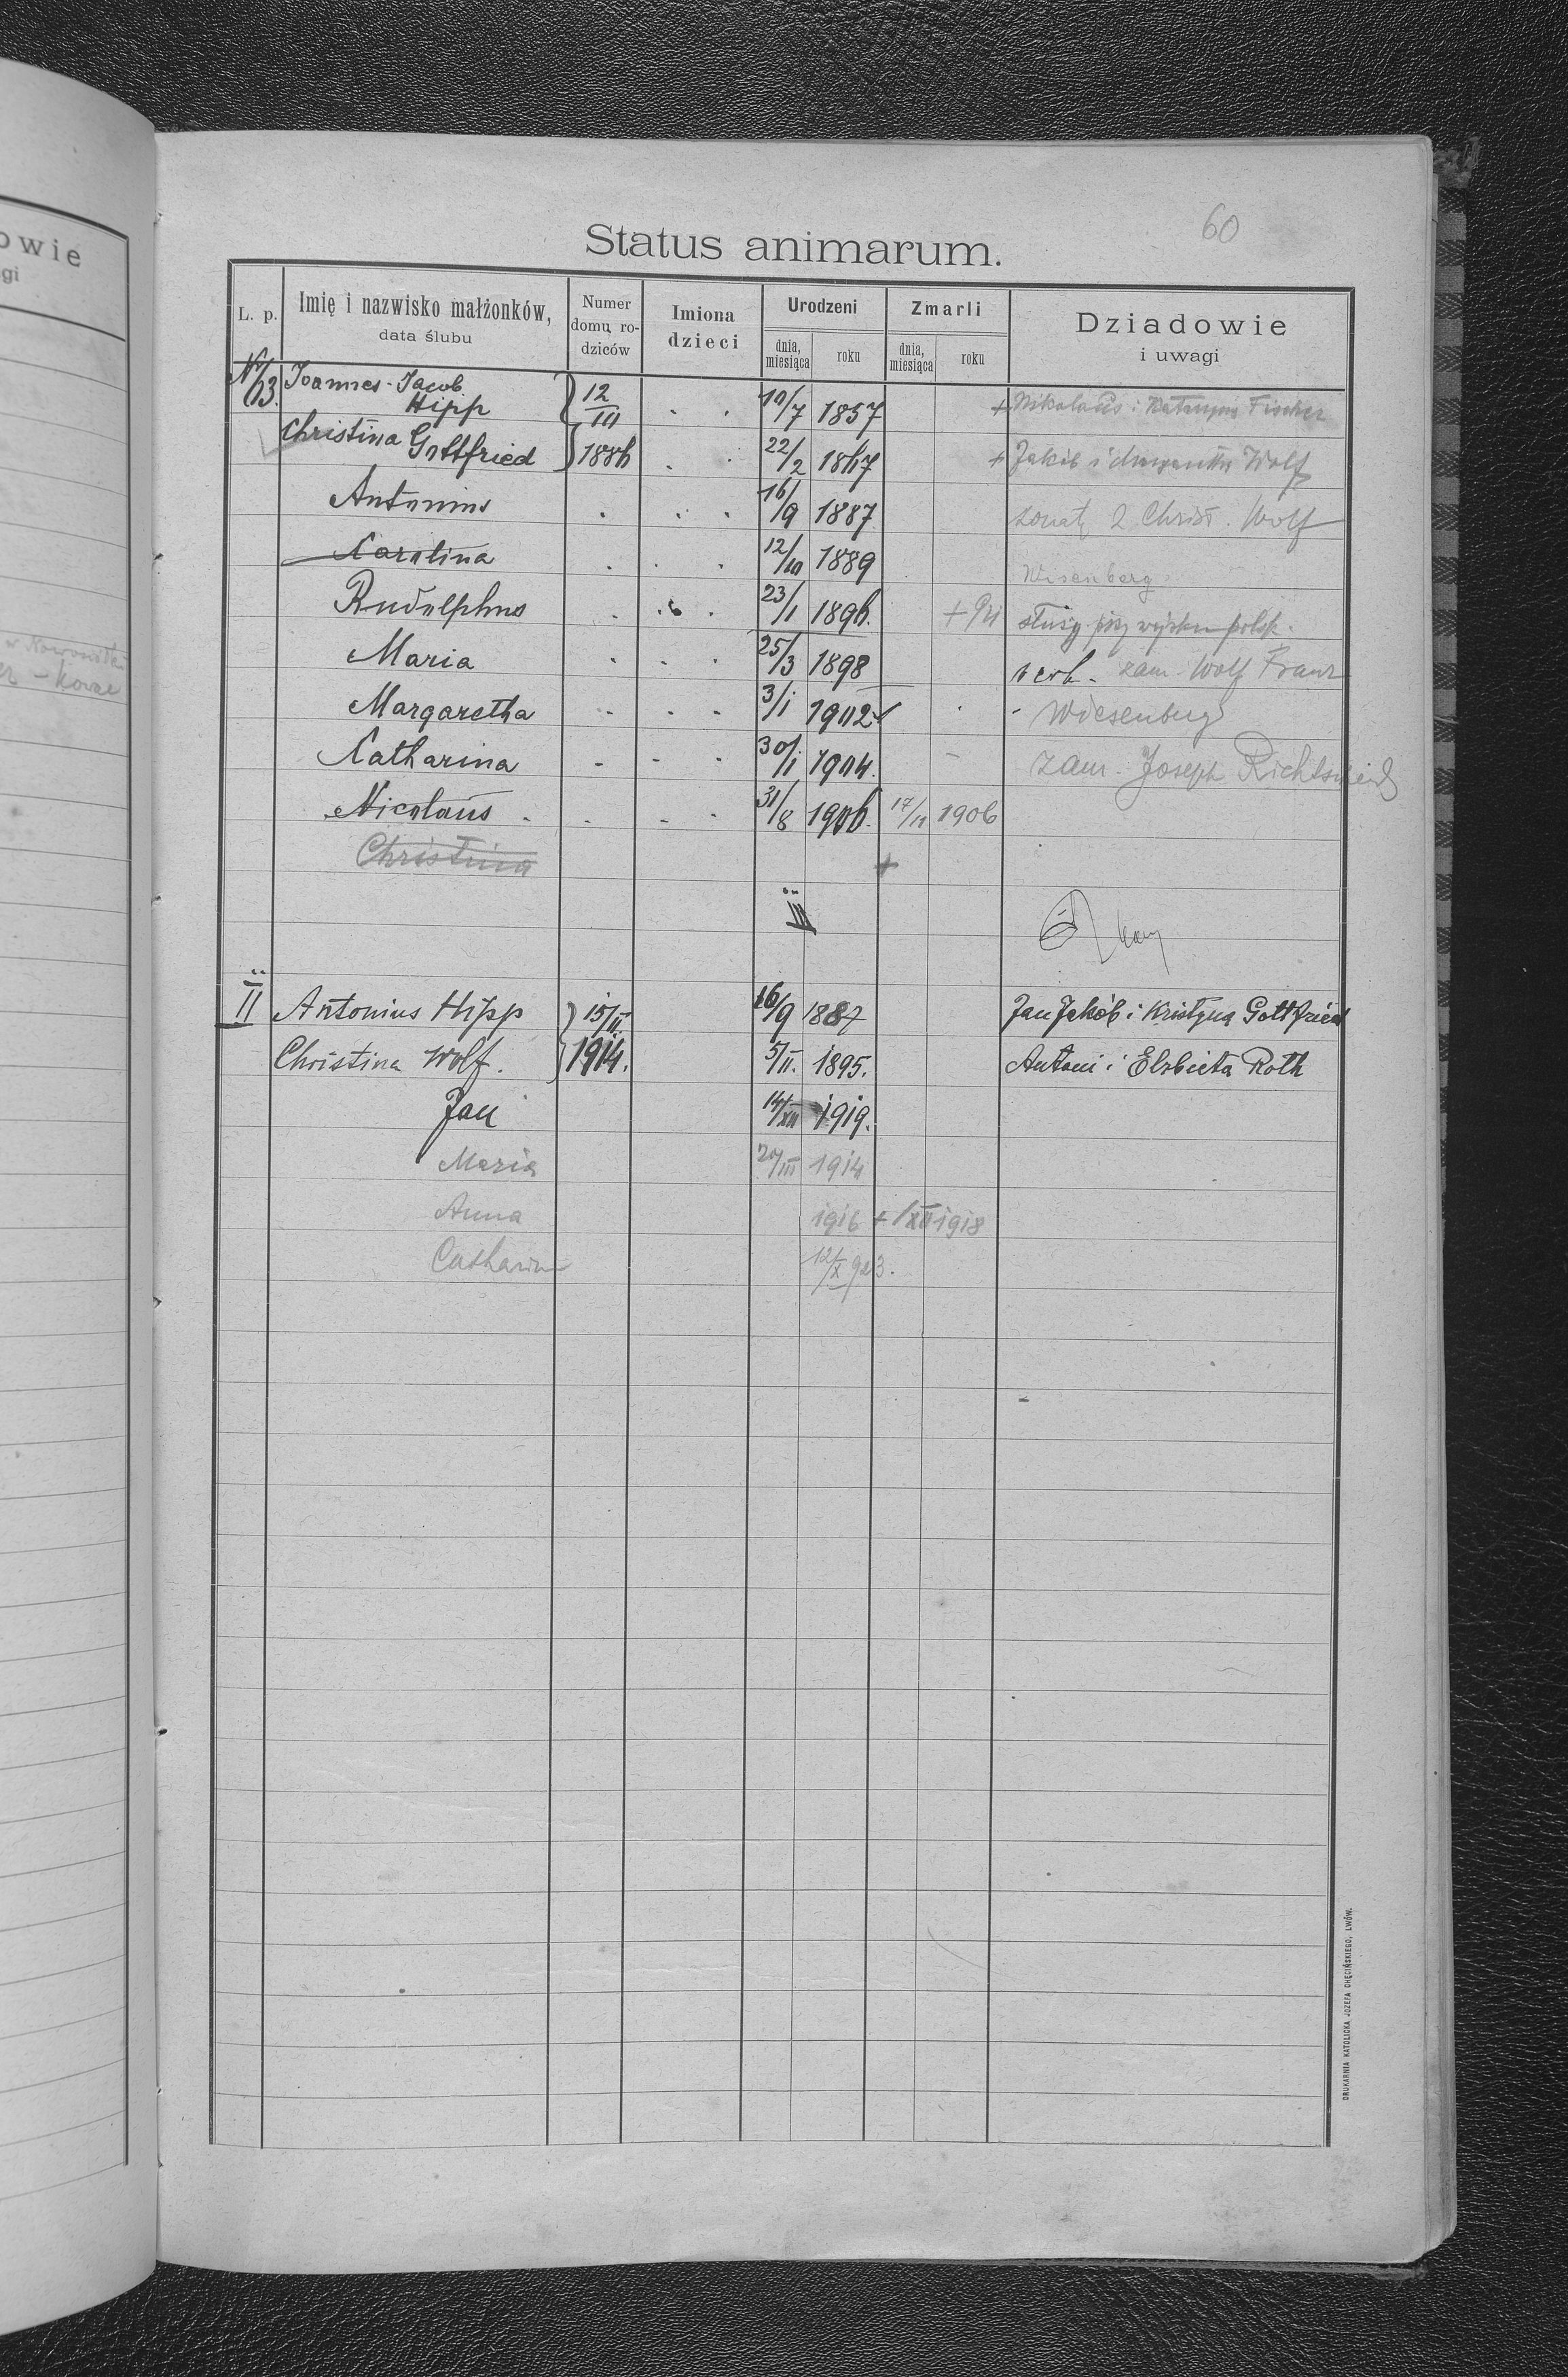 60
Status animarum.
L. p. | Imię i nazwisko małżonków, data ślubu | Numer domu rodziców | Imiona dzieci | Urodzeni dnia, miesiąca | roku | Zmarli dnia, miesiąca | roku | Dziadowie i uwagi
N/13. Joannes-Jacob Hipp } 12/III . . 10/7 1857 + Nikolaus i Katarzyna Fischer
Christina Gottfried } 1886 . . 22/2 1867 + Jakób i Wolf
Antonius . . . 16/9 1887 żonaty 2 Christ. Wolf
Karolina . . . 12/10 1889 Wisenberg
Rudolphus . . 6 . 23/1 1896. + służy przy wojsku polsk.
Maria . . . 25/3 1898 verh. zam. Wolf Franz
Margaretha - - - 3/1 1902 - Wiesenberg
Katharina - - - 30/1 1904. - zam. Joseph
Nicolaus . - - . 31/8 1906. 17/11 1906
Christina +
III
II Antonius Hipp } 15/II 16/9 1887 Jan Jakób i Kristyna Gottfried
Christina Wolf. } 1914. 5/II. 1895. Antoni i Elżbieta Roth
Jan 14/XII 1919.
Maria 20/III 1914
Anna 1916 + /XII 1918
Catharina 12/X 923.
DRUKARNIA KATOLICKA JÓZEFA CHĘCIŃSKIEGO, LWÓW.
owie
gi